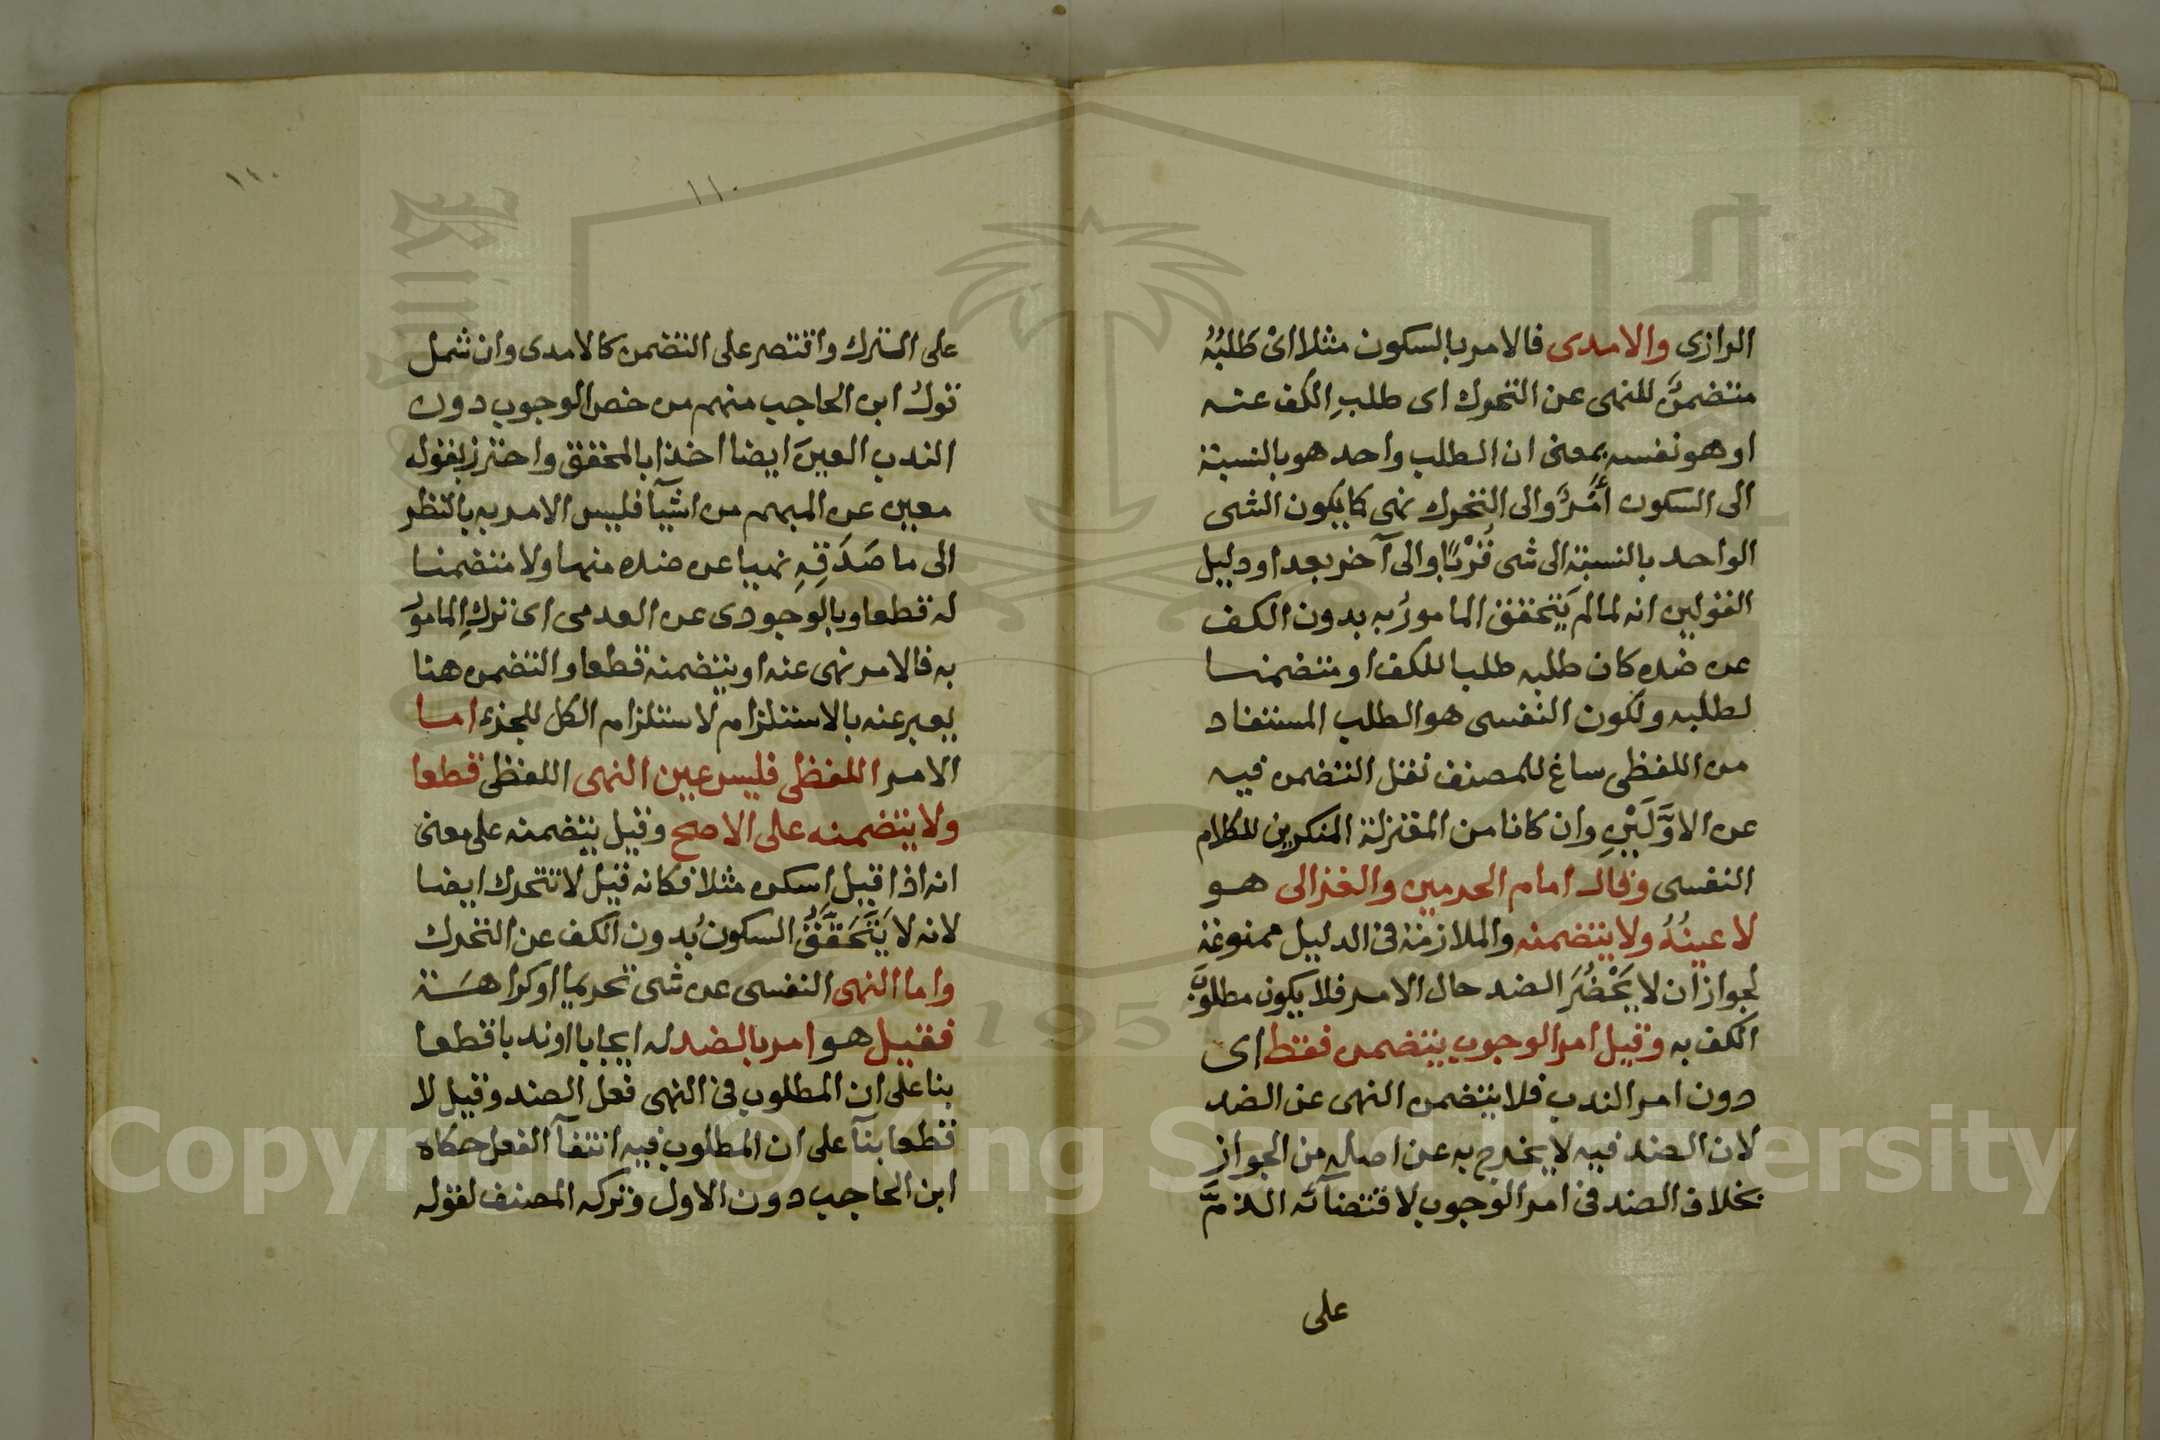 الرازى والامدى فالامر بالسكون مثلا اىْ طَلَبُهُ
متضمنٌ للنهى عن التحرك اى طلبِ الكف عنه
او هو نفسه بمعنى ان الطلب واحد هو بالنسبة
الى السكون أَمْرٌ والى التحرك نهى كما يكون الشى
الواحد بالنسبة الى شى قُرْبًا والى آخر بعدا ودليل
القولين انه لما لم يَتحقق المامورُ به بدون الكف
عن ضده كان طلبه طلبا للكف او متضمنا
لطلبه ولكون النفسى هو الطلب المستفاد
من اللفظى ساغ للمصنف نقل التضمن فيه
عن الاوَّلَيْنِ وان كانا من المعتزلة المنكرين للكلام
النفسى وقال امام الحرمين والغزالى هو
لا عينُهُ ولا يتضمنه والملازمة فى الدليل ممنوعة
لجواز ان لا يَحْضُرَ الضد حال الامر فلا يكون مطلوبَ
الكف به وقيل امر الوجوب يتضمن فقط اى
دون امر الندب فلا يتضمن النهى عن الضد
لان الضد فيه لا يخرج به عن اصله من الجواز
بخلاف الضد فى امر الوجوب لاقتضآئه الذمَّ
على
١١٠
١١٠
على الترك واقتصر على التضمن كالامدى وان شمل
قولُ ابن الحاجب منهم من خص الوجوب دون
الندب العينَ ايضا اخذا بالمحقق واحترز بقوله
معين عن المبهم من اشيآ فليس الامر به بالنظر
الى ما صَدَقِهِ نهيا عن ضده منها ولا متضمنا
له قطعا وبالوجودى عن العدمى اى تركِ المامورِ
به فالامر نهى عنه او يتضمنه قطعا والتضمن هنا
يعبر عنه بالاستلزام لاستلزام الكل للجزء اما
الامر اللفظى فليس عين النهى اللفظى قطعا
ولا يتضمنه على الاصح وقيل يتضمنه على معنى
انه اذا قيل اسكن مثلا فكانه قيل لا تتحرك ايضا
لانه لا يَتَحَقَّقُ السكونُ بدون الكف عن التحرك
واما النهى النفسى عن شى تحريما او كراهَة
فقيل هو امر بالضد له ايجابا او ندبا قطعا
بنا على ان المطلوب فى النهى فعل الضد وقيل لا
قطعا بنآ على ان المطلوب فيه انتفآ الفعل حكاه
ابن الحاجب دون الاول وتركه المصنف لقوله
Copyright © King Saud University
1957